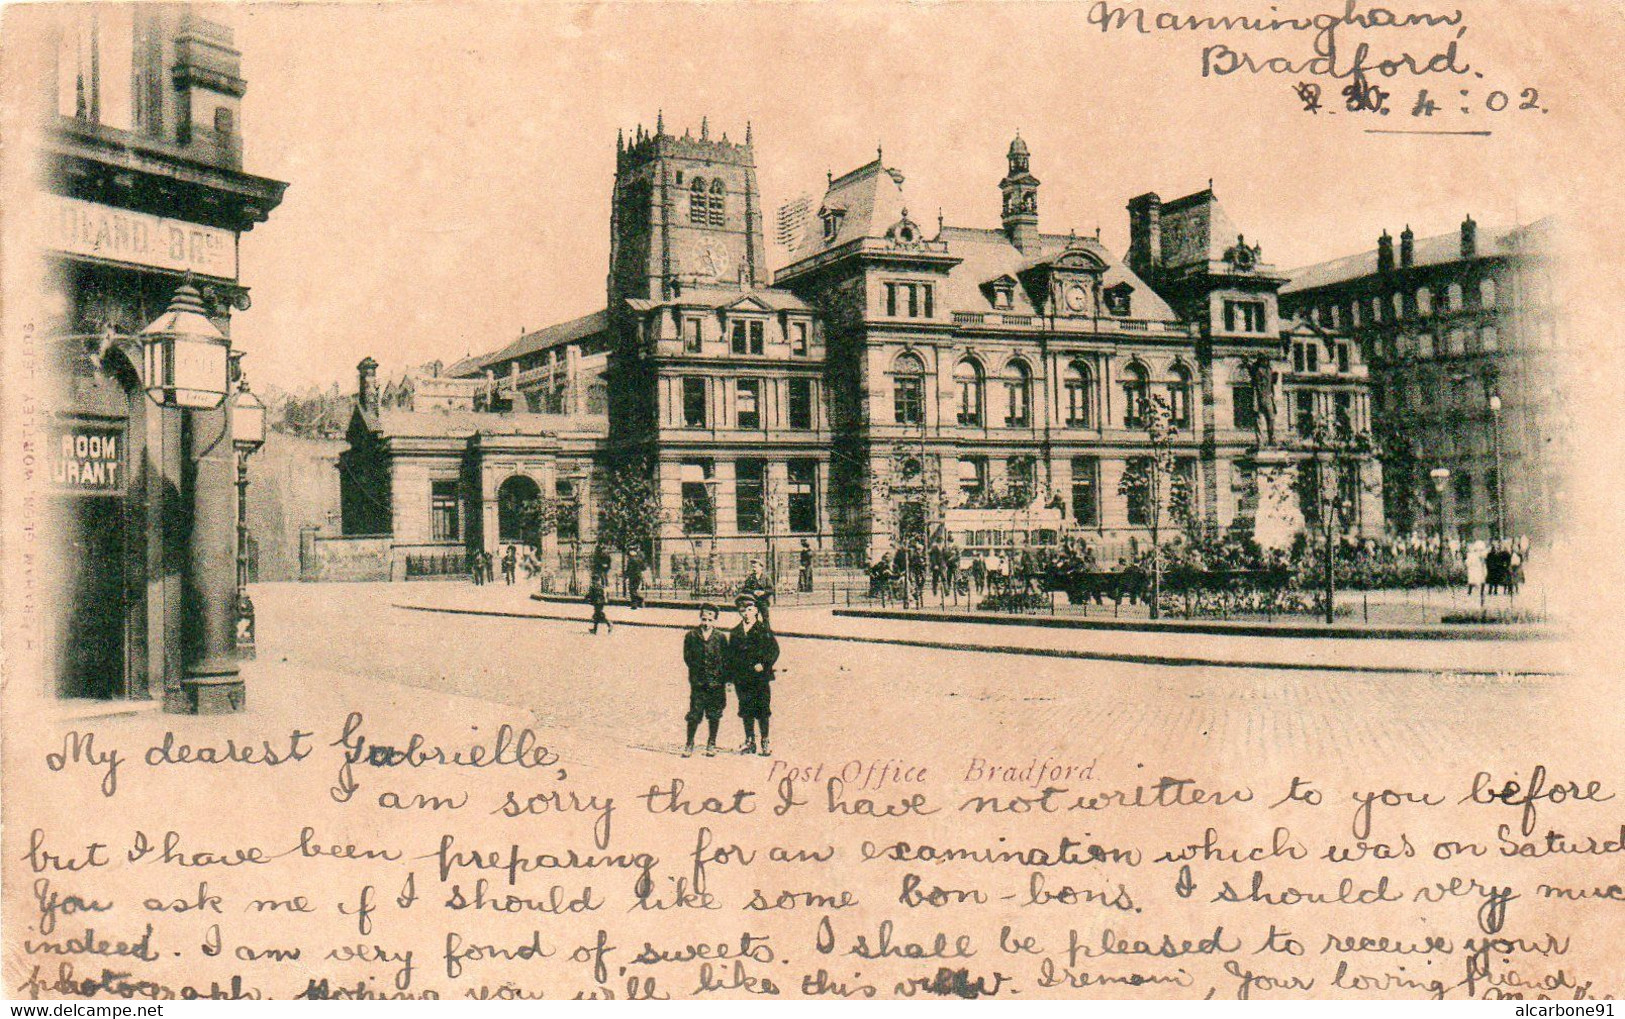 Manningham,
Bradford.
30: 4: 02.
DLAND BRCH
ROOM
URANT
H. GRAHAM GLEN, WORTLEY, LEEDS.
Post Office Bradford.
My dearest Gabrielle,
I am sorry that I have not written to you before
but I have been preparing for an examination which was on Saturd
You ask me if I should like some bon-bons. I should very muc
indeed. I am very fond of sweets. I shall be pleased to receive your
photograph. Hoping you will like this view. I remain, Your loving friend,
alcarbone91